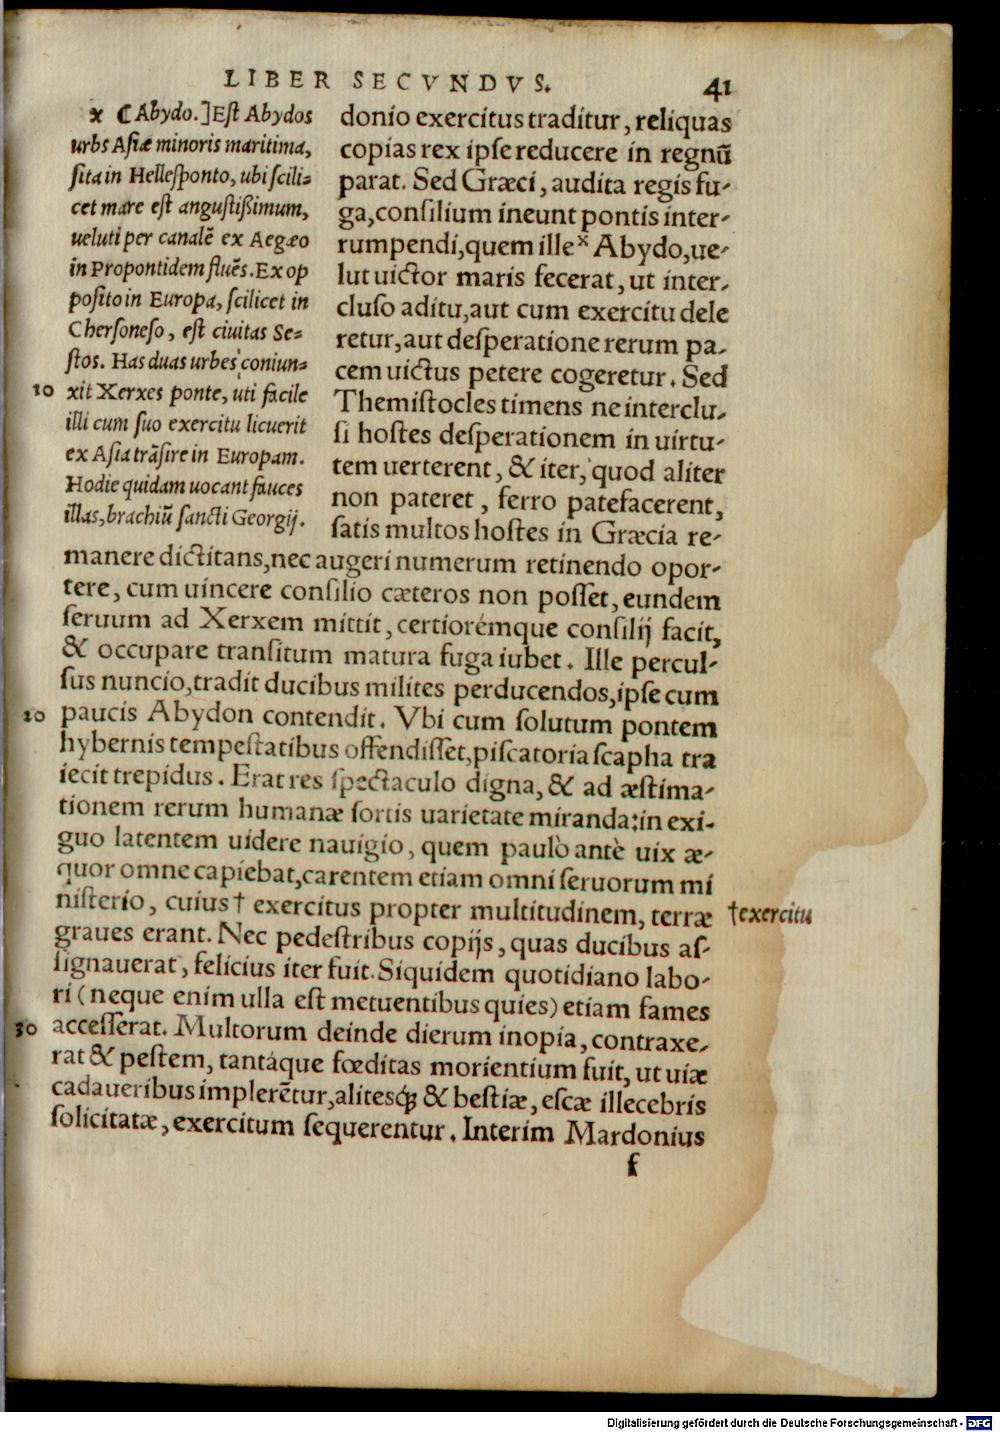 LIBER SECVNDVS.
41
x ⸿Abydo.]Eſt Abydos
urbs Aſiæ minoris maritima,
ſita in Helleſponto, ubi ſcili⸗
cet mare eſt anguſtißimum,
ueluti per canalē ex Aegæo
in Propontidem fluēs. Ex op
poſito in Europa, ſcilicet in
Cherſoneſo, eſt ciuitas Se⸗
ſtos. Has duas urbes coniun⸗
10 xit Xerxes ponte, uti facile
illi cum ſuo exercitu licuerit
ex Aſia trāſire in Europam.
Hodie quidam uocant fauces
illas, brachiū ſancti Georgij.
donio exercitus traditur, reliquas
copias rex ipſe reducere in regnū
parat. Sed Græci, audita regis fu-
ga, conſilium ineunt pontis inter-
rumpendi, quem ille ˣ Abydo, ue-
lut uictor maris fecerat, ut inter-
cluſo aditu, aut cum exercitu dele
retur, aut deſperatione rerum pa-
cem uictus petere cogeretur. Sed
Themiſtocles timens ne interclu-
ſi hoſtes deſperationem in uirtu-
tem uerterent, & iter, quod aliter
non pateret, ferro patefacerent,
ſatis multos hoſtes in Græcia re-
manere dictitans, nec augeri numerum retinendo opor-
tere, cum uincere conſilio cæteros non poſſet, eundem
ſeruum ad Xerxem mittit, certiorémque conſilij facit,
& occupare tranſitum matura fuga iubet. Ille percul-
ſus nuncio, tradit ducibus milites perducendos, ipſe cum
20 paucis Abydon contendit. Vbi cum ſolutum pontem
hybernis tempeſtatibus offendiſſet, piſcatoria ſcapha tra
iecit trepidus. Erat res ſpectaculo digna, & ad æſtima-
tionem rerum humanæ ſortis uarietate miranda: in exi-
guo latentem uidere nauigio, quem paulò antè uix æ-
quor omne capiebat, carentem etiam omni ſeruorum mi
niſterio, cuius † exercitus propter multitudinem, terræ
†exercitu
graues erant. Nec pedeſtribus copijs, quas ducibus aſ-
ſignauerat, felicius iter fuit. Siquidem quotidiano labo-
ri (neque enim ulla eſt metuentibus quies) etiam fames
30 acceſſerat. Multorum deinde dierum inopia, contraxe-
rat & peſtem, tantáque fœditas morientium fuit, ut uiæ
cadaueribus implerētur, alitesꝗ́; & beſtiæ, eſcæ illecebris
ſolicitatæ, exercitum ſequerentur. Interim Mardonius
f
Digitalisierung gefördert durch die Deutsche Forschungsgemeinschaft - DFG